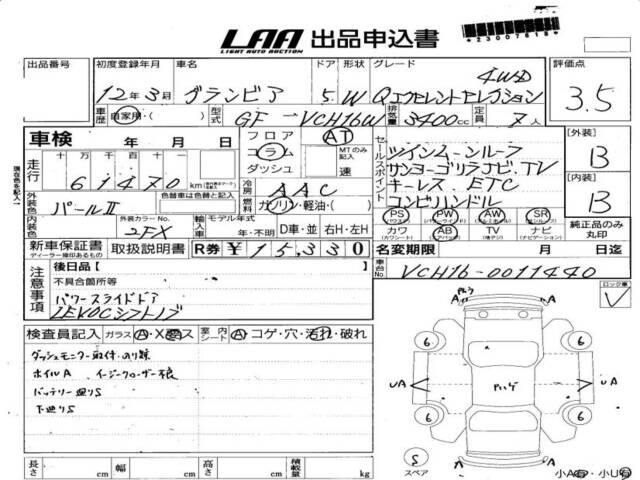 LAA 出品申込書
LIGHT AUTO AUCTION
*23007818*
出品番号 初度登録年月 車名 ドア 形状 グレード 評価点
12年3月 グランビア 5 W Qエクセレントセレクション 4WD 3.5
車歴 自家用( ) 型式 GF-VCH16W 排気量 3400cc 定員 7人
車検 年 月 日
フロア コラム ダッシュ AT MTのみ記入 速
走行 十 万 千 百 十
61470 km
冷房 AAC
燃料 ガソリン・軽油・( )
外装色 パールⅡ 色替車は色替と記入
内装色 外装カラーNo. 2FX
輸入車 モデル年式 年・不明 D車・並 右H・左H
セールスポイント
ツインムーンルーフ
サンヨーゴリラナビ、TV
キーレス ETC
コンビハンドル
PS PW AW SR
カワ AB TV ナビ 純正品のみ丸印
[外装] B
[内装] B
新車保証書 取扱説明書 R券 ¥15,330
ディーラー捺印あるもの
名変期限 月 日迄
車台No. VCH16-0011440
注意事項
後日品( )
不具合箇所等
パワースライドドア
ロック車 レ
検査員記入 ガラス A・X・ス 室内 シート A・コゲ・穴・汚れ・破れ
ダッシュモニター取付・のり跡
ホイルA イージークローザー不良
バッテリー廻りS
下廻りS
A A
6 6
UA UA
6 6
A A
S スペア
小A有・小U有
長さ cm 幅 cm 高さ cm 積載量 kg